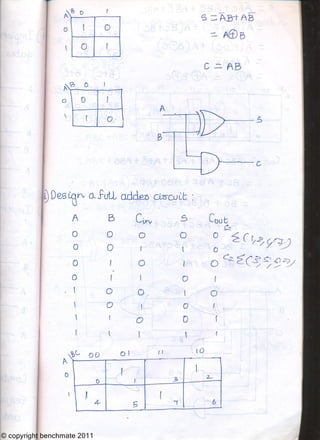 A\B 0 1
0 1 0
1 0 1
S = AB + AB
= A⊕B
C = AB
A\B 0 1
0 1
1 1 0
A
B
S
C
Design a full adder circuit :
A B Cin S Cout
0 0 0 0 0
0 0 1 1 0
0 1 0 1 0
0 1 1 0 1
1 0 0 1 0
1 0 1 0 1
1 1 0 0 1
1 1 1 1 1
A\BC 00 01 11 10
0 0 1 1 3 1 2
1 1 4 5 1 7 6
© copyright benchmate 2011